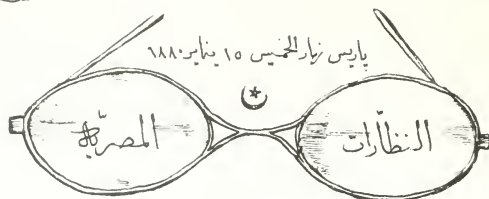 باريس نهار الخميس ١٥ يناير ١٨٨٠
النظّارات المصريّة